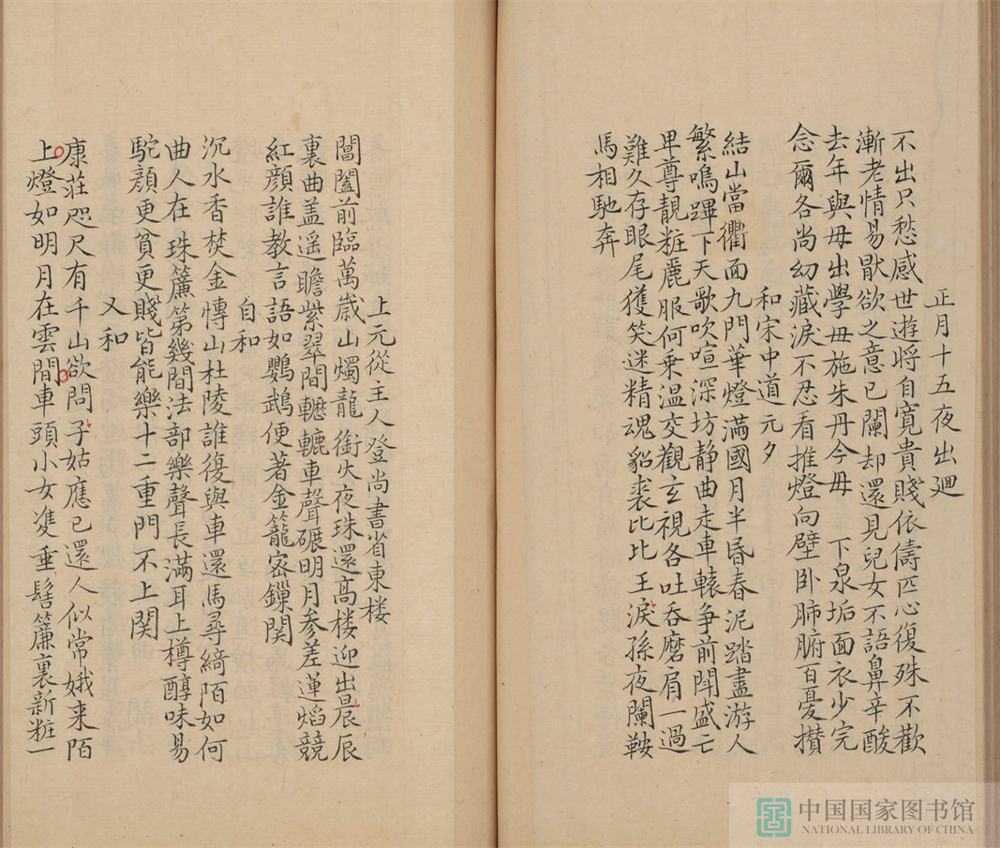 正月十五夜出廻
不出只愁感世遊將自寛貴賤依儔匹心復殊不歡
漸老情易猒欲之意已闌却還見兒女不語鼻辛酸
去年與毋出學毋施朱丹今毋下泉垢面衣少完
念爾各尚幼藏淚不忍看推燈向壁卧肺腑百憂攅
和宋中道元夕
結山當衢面九門華燈滿國月半昏春泥踏盡游人
繁鳴蹕下天歌吹喧深坊静曲走車轅争前閗盛亡
卑尊靚粧麗服何乗温交觀玄視各吐吞磨肩一過
難久存眼尾獲笑迷精魂貂裘比比王淚孫夜闌鞍
馬相馳奔
上元從主人登尚書省東楼
閶闔前臨萬歳山燭龍銜火夜珠還高楼迎出晨辰
裏曲盖遥瞻紫翠間轣轆車聲碾明月参差蓮熖競
紅顔誰教言語如鸚鵡便著金籠密鏁関
自和
沉水香焚金慱山杜陵誰復與車還馬尋綺陌如何
曲人在珠簾第幾間法部樂聲長滿耳上樽醇味易
駝顔更貧更賤皆能樂十二重門不上関
又和
康莊咫尺有千山欲問子姑應已還人似常娥来陌
上燈如明月在雲間車頭小女䨇垂髻簾裏新粧一
中国国家图书馆
NATIONAL LIBRARY OF CHINA